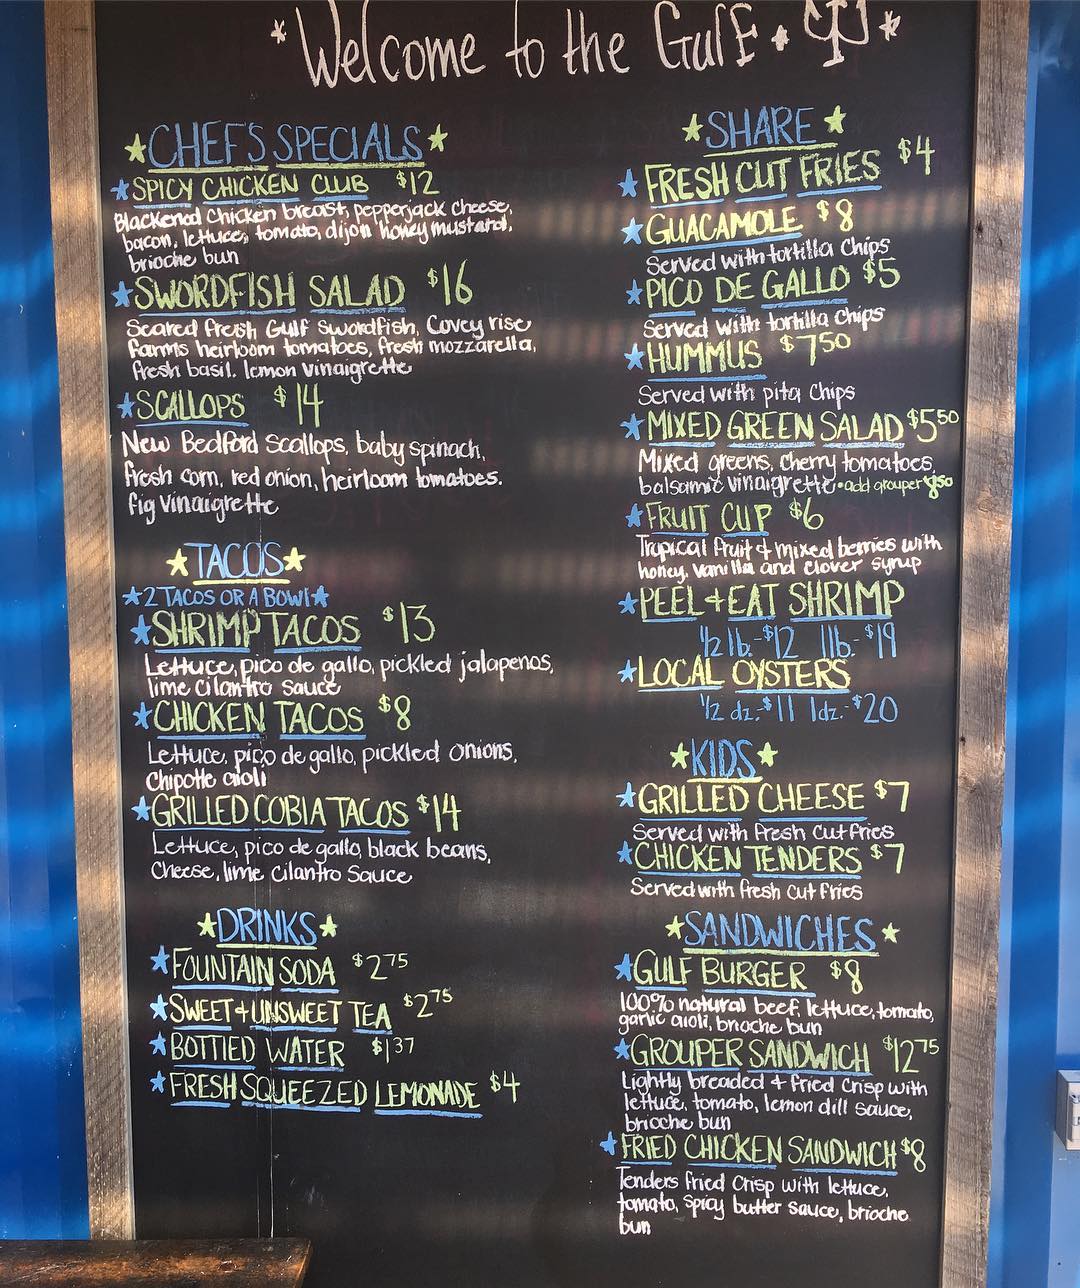 *Welcome to the Gulf •
CHEF'S SPECIALS
SPICY CHICKEN CLUB $12
Blackened chicken breast, pepperjack cheese,
bacon, lettuce, tomato, dijon honey mustard,
brioche bun
SWORDFISH SALAD $16
Seared fresh Gulf swordfish, Covey rise
farms heirloom tomatoes, fresh mozzarella,
fresh basil. lemon vinaigrette
SCALLOPS $14
New Bedford scallops, baby spinach,
fresh corn, red onion, heirloom tomatoes.
fig vinaigrette
TACOS
2 TACOS OR A BOWL
SHRIMP TACOS $13
Lettuce, pico de gallo, pickled jalapenos,
lime cilantro sauce
CHICKEN TACOS $8
Lettuce, pico de gallo, pickled onions,
Chipotle aioli
GRILLED COBIA TACOS $14
Lettuce, pico de gallo, black beans,
Cheese, lime cilantro sauce
DRINKS
FOUNTAIN SODA $2.75
SWEET + UNSWEET TEA $2.75
BOTTLED WATER $1.37
FRESH SQUEEZED LEMONADE $4
SHARE
FRESH CUT FRIES $4
GUACAMOLE $8
Served with tortilla Chips
PICO DE GALLO $5
Served with tortilla chips
HUMMUS $7.50
Served with pita chips
MIXED GREEN SALAD $5.50
Mixed greens, cherry tomatoes,
balsamic vinaigrette • add grouper
FRUIT CUP $6
Tropical fruit + mixed berries with
honey, vanilla and clover syrup
PEEL + EAT SHRIMP
1/2 lb.-$12 1lb.-$19
LOCAL OYSTERS
1/2 dz.-$11 1dz.-$20
KIDS
GRILLED CHEESE $7
Served with fresh cut fries
CHICKEN TENDERS $7
Served with fresh cut fries
SANDWICHES
GULF BURGER $8
100% natural beef, lettuce, tomato,
garlic aioli, brioche bun
GROUPER SANDWICH $12.75
Lightly breaded + fried crisp with
lettuce, tomato, lemon dill sauce,
brioche bun
FRIED CHICKEN SANDWICH $8
Tenders fried crisp with lettuce,
tomato, spicy butter sauce, brioche
bun